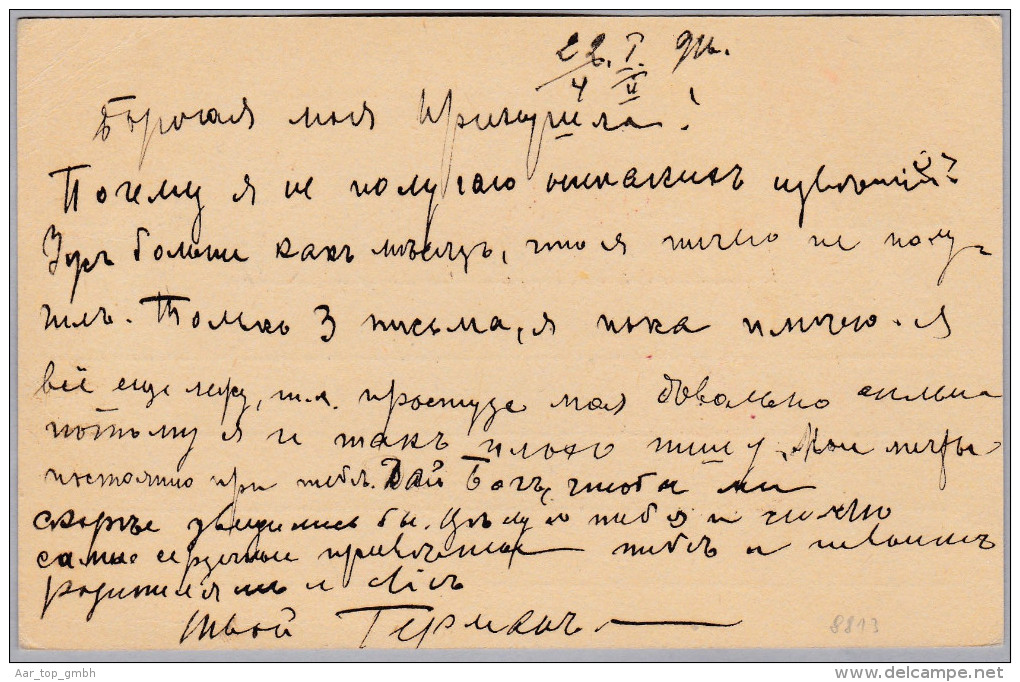 22.I.
4 II
Дорогая моя Иринушка!
Почему я не получаю никакихъ извѣстій?
Ужъ больше какъ мѣсяцъ, что я ничего не полу-
чилъ. Только 3 письма, я пока имѣю. Я
всё еще лежу, т.к. простуда моя довольно сильна
потому я и такъ плохо пишу. Мои мечты
постоянно при тебѣ. Дай Богъ, чтобы мы
скорѣе увидились бы. Цѣлую тебя и
самые сердечные тебѣ и твоимъ
родителямъ и
твой Германъ.
8813
Aar_top_gmbh
www.delcampe.net